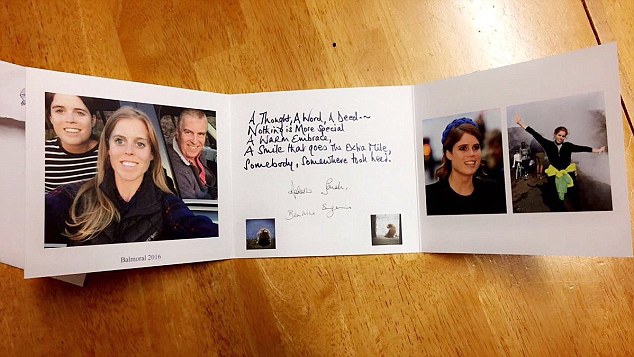 A Thought, A Word, A Deed~
Nothing is More Special
A Warm Embrace,
A Smile that goes the Extra Mile,
Somebody, Somewhere took heed.
Beatrice Eugenie
Balmoral 2016